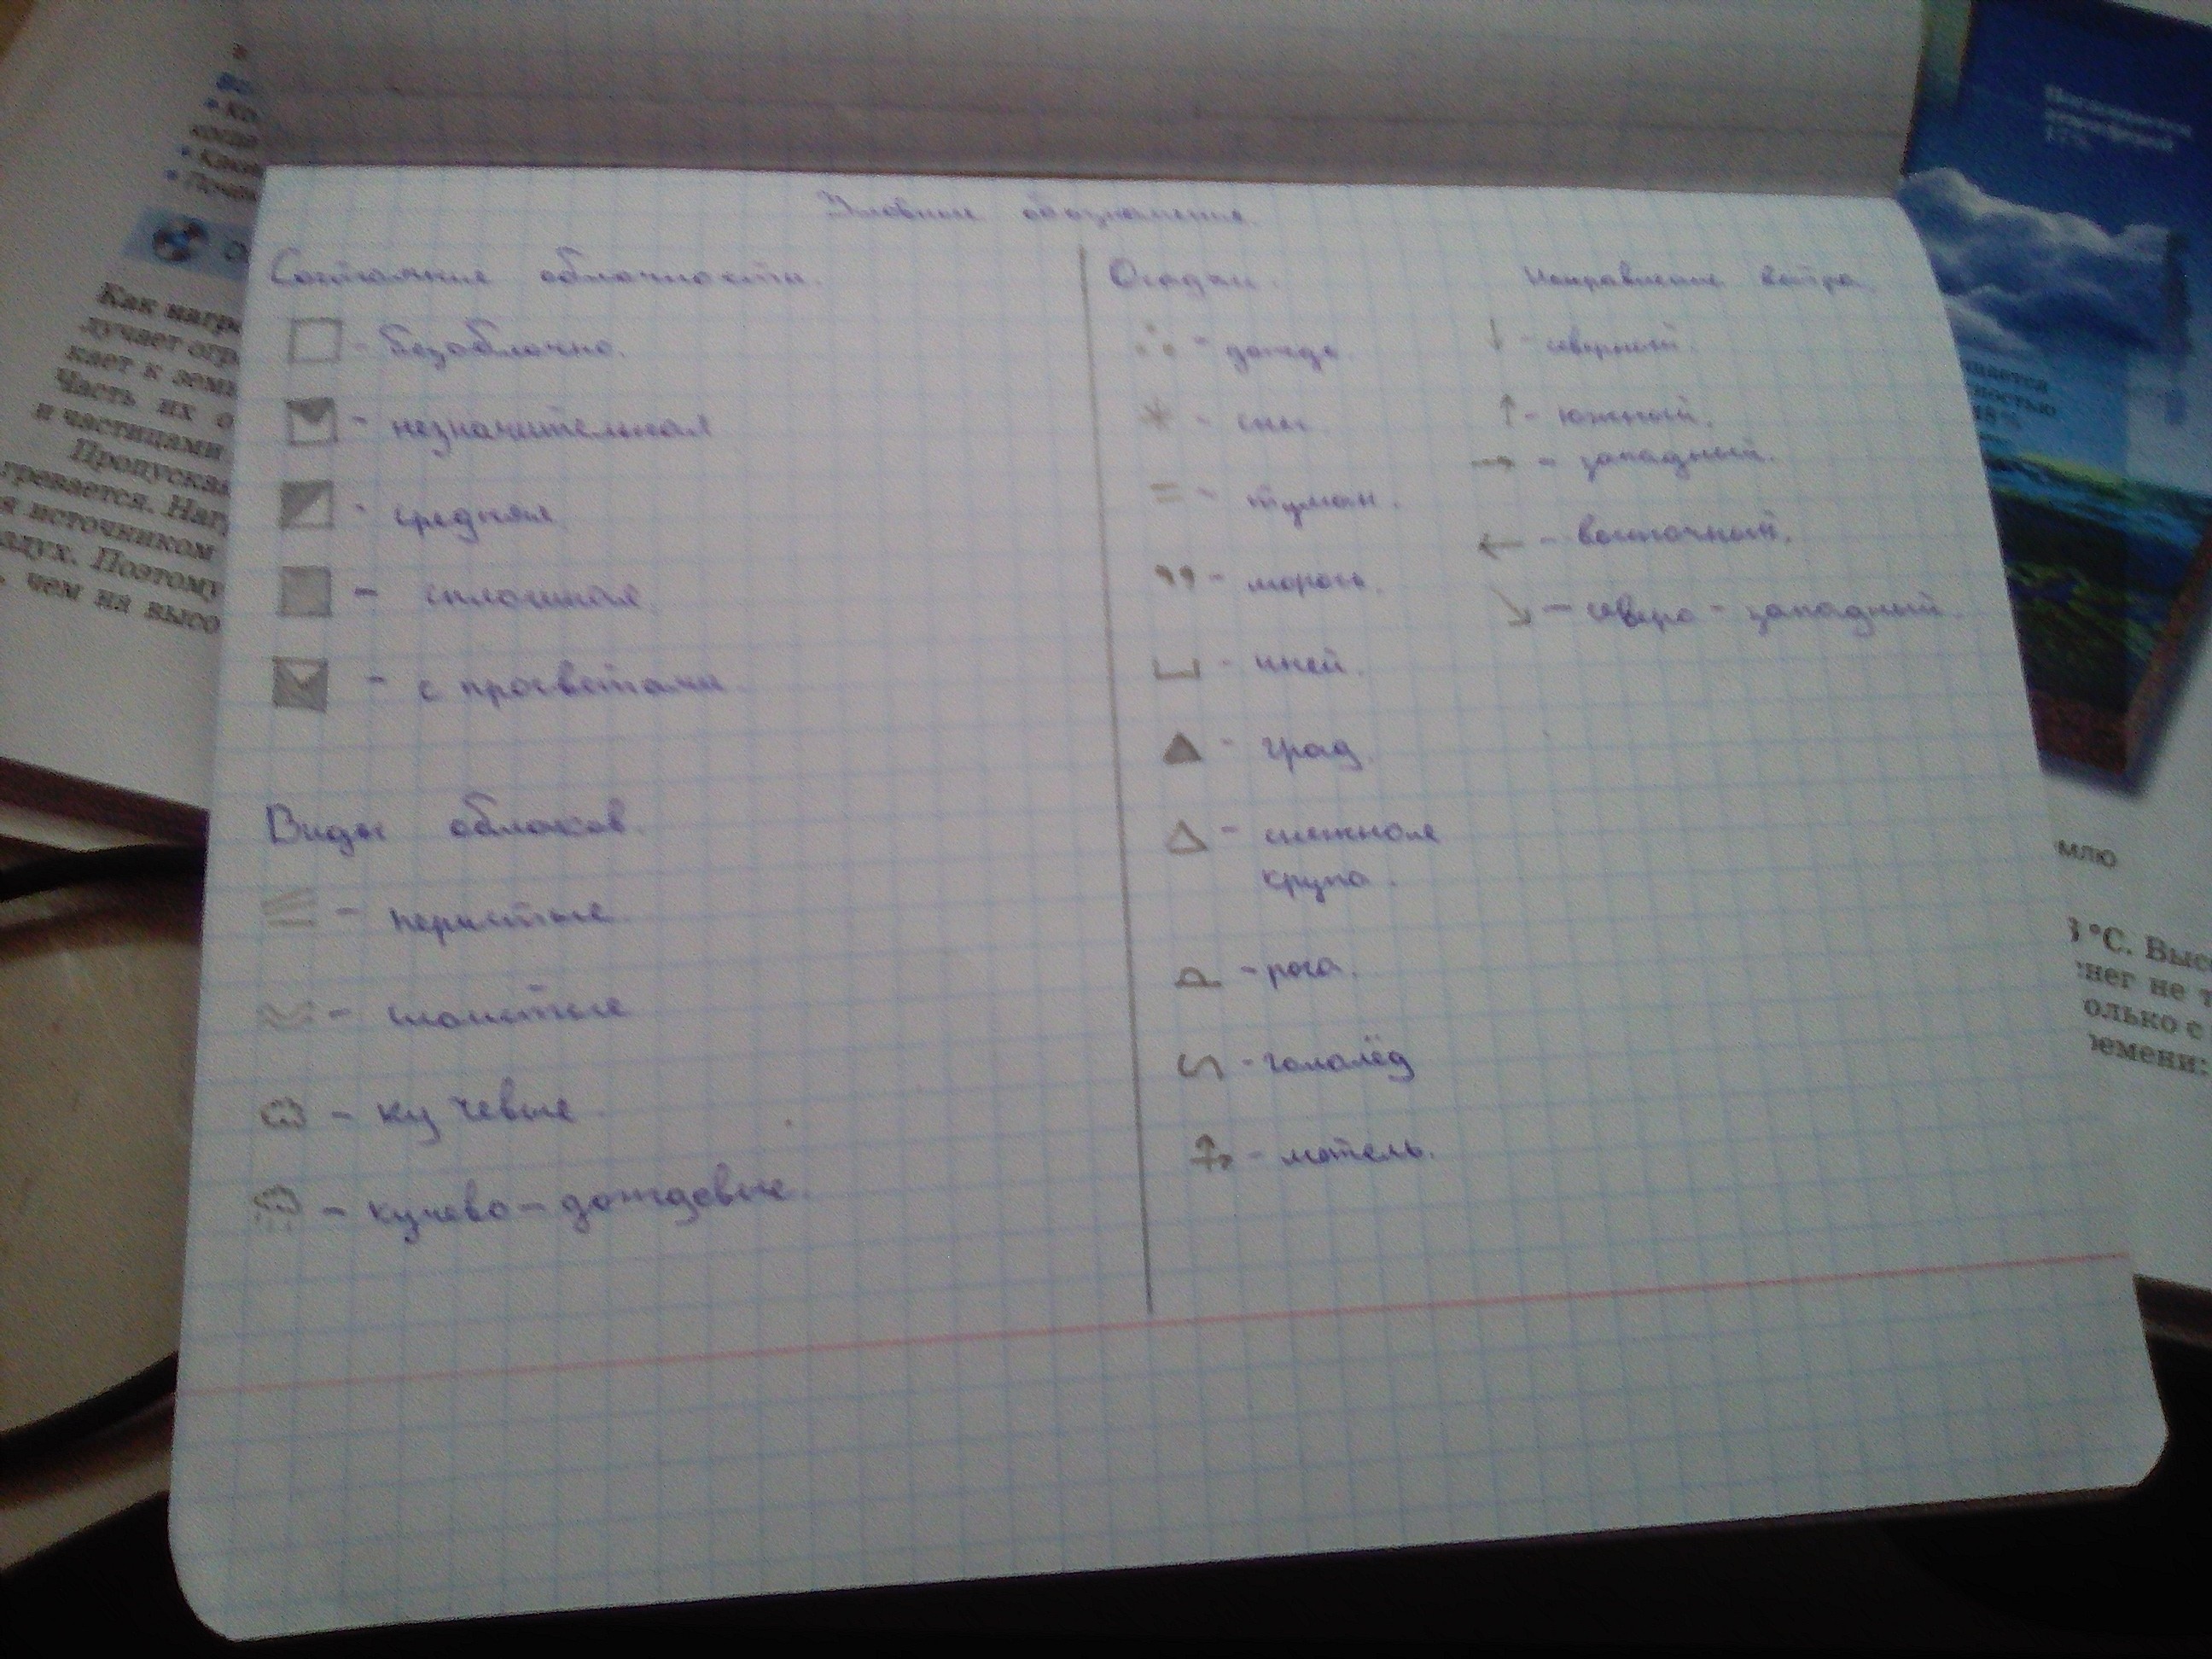 Условные обозначения.
Состояние облачности.
- безоблачно.
- незначительная
- средняя
- сплошная
- с просветами
Виды облаков.
- перистые
- слоистые
- кучевые
- кучево-дождевые.
Осадки.
- дождь.
- снег
= - туман.
- морось.
- иней.
- град.
- снежная
крупа.
- роса.
- гололёд
- метель.
Направление ветра.
↓ - северный.
↑ - южный.
→ - западный.
← - восточный.
↘ - северо-западный
Как нагр
лучает огр
кает к земл
Часть их о
и частицами
Пропуская
гревается. Наг
я источником
здух. Поэтому
чем на высо
когда
млю
°C. Высо
нег не т
олько с
ремени: